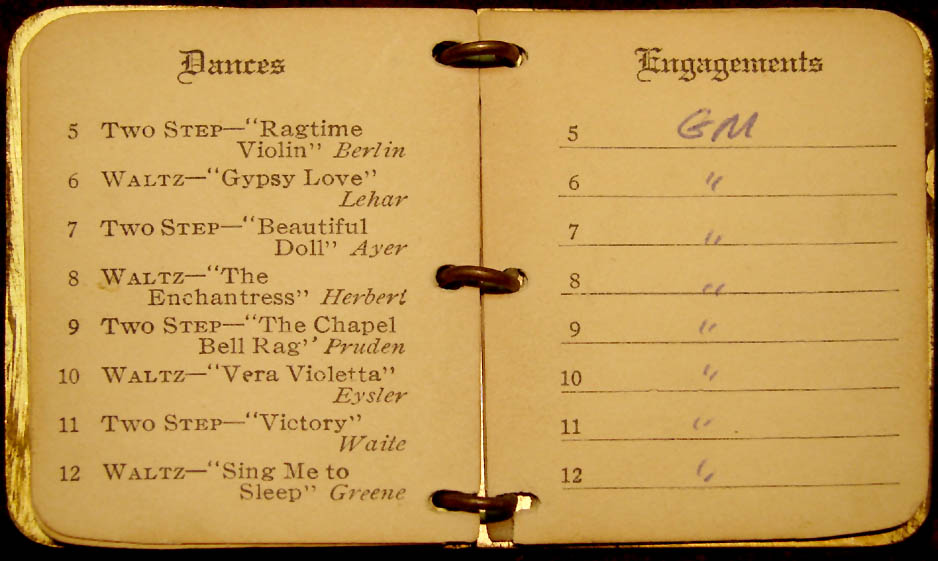 Dances
5 Two Step—"Ragtime
Violin" Berlin
6 Waltz—"Gypsy Love"
Lehar
7 Two Step—"Beautiful
Doll" Ayer
8 Waltz—"The
Enchantress" Herbert
9 Two Step—"The Chapel
Bell Rag" Pruden
10 Waltz—"Vera Violetta"
Eysler
11 Two Step—"Victory"
Waite
12 Waltz—"Sing Me to
Sleep" Greene
Engagements
5 GM
6 "
7 "
8 "
9 "
10 "
11 "
12 "